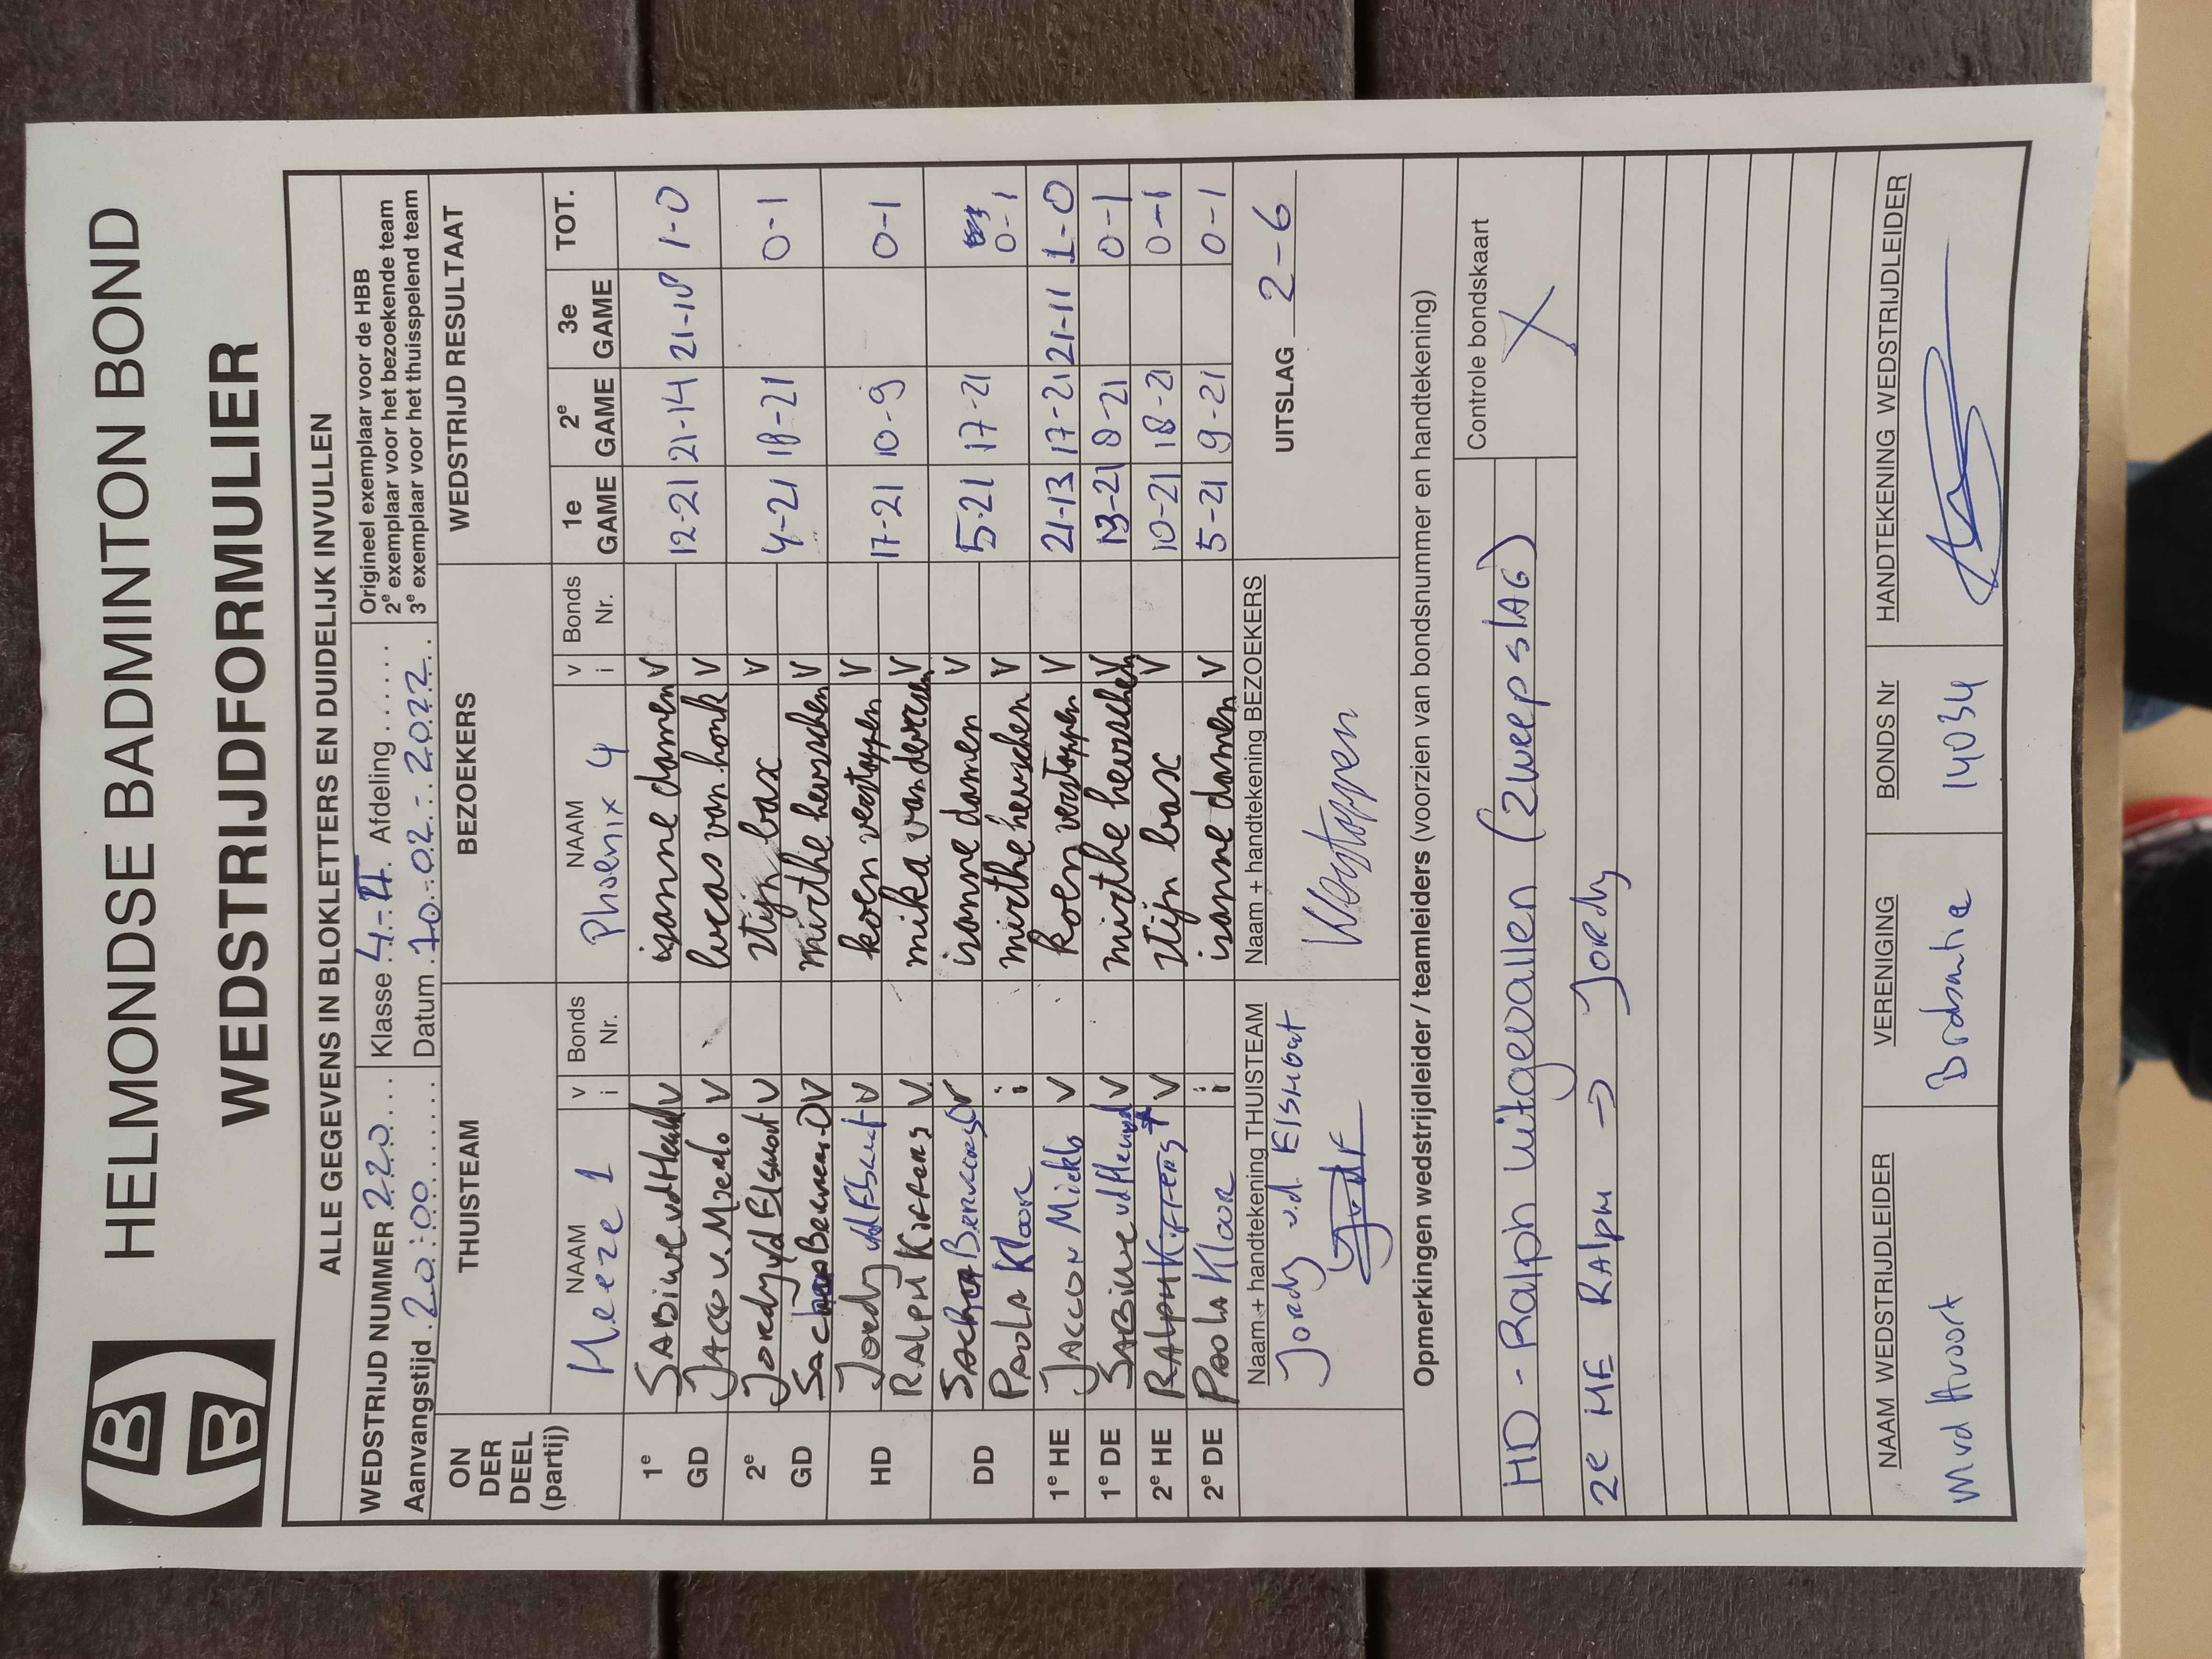 HELMONDSE BADMINTON BOND
WEDSTRIJDFORMULIER
ALLE GEGEVENS IN BLOKLETTERS EN DUIDELIJK INVULLEN
WEDSTRIJD NUMMER 220 Klasse 4-A Afdeling Origineel exemplaar voor de HBB
Aanvangstijd 20:00 Datum 10-02-2022 2e exemplaar voor het bezoekende team
3e exemplaar voor het thuisspelend team
ON DER DEEL (partij) THUISTEAM BEZOEKERS WEDSTRIJD RESULTAAT
NAAM v i Bonds Nr. NAAM v i Bonds Nr. 1e GAME 2e GAME 3e GAME TOT.
Heeze 1 Phoenix 4
1e SABINE vd V isanne damen V
GD JACCO v. Mierlo V lucas van honk V 12-21 21-14 21-18 1-0
2e Jordy vd Elshout V stijn bax V 4-21 18-21 0-1
GD SACHA V mirthe heurschen V
HD Jordy vd Elshout V koen verstappen V 17-21 10-9 0-1
RALPH Kiffers V mika van deurzen V
DD SACHA V isanne damen V 5-21 17-21 0-1
PAOLA Kloor i mirthe heurschen V
1e HE JACCO v Mierlo V koen verstappen V 21-13 17-21 21-11 1-0
1e DE SABINE vd V mirthe heurschen V 13-21 8-21 0-1
2e HE RALPH Kiffers V stijn bax V 10-21 18-21 0-1
2e DE PAOLA Kloor i isanne damen V 5-21 9-21 0-1
Naam + handtekening THUISTEAM Naam + handtekening BEZOEKERS UITSLAG 2-6
Jordy v.d. Elshout Verstappen
Opmerkingen wedstrijdleider / teamleiders (voorzien van bondsnummer en handtekening)
Controle bondskaart
X
HD - Ralph uitgevallen (zweepslag)
2e HE RALPH => Jordy
NAAM WEDSTRIJDLEIDER VERENIGING BONDS Nr HANDTEKENING WEDSTRIJDLEIDER
14034